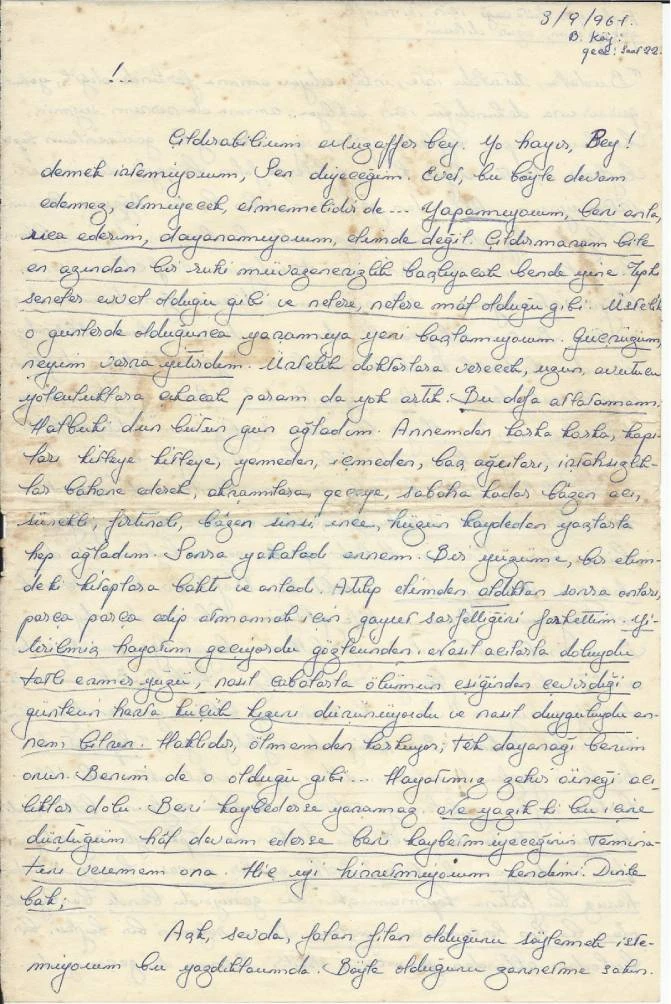 3/9/961.
B. Köy.
gece: saat 22.
!
Çıldırabilirim Muzaffer bey. Yo hayır, Bey!
demek istemiyorum, Sen diyeceğim. Evet, bu böyle devam
edemez, etmiyecek, etmemelidir de... Yapamıyorum, beni anla,
rica ederim, dayanamıyorum, elimde değil. Çıldırmasam bile
en azından bir ruhi muvazenesizlik başlıyacak bende yine. Tıpkı
seneler evvel olduğu gibi ve nelere, nelere mal olduğu gibi. Üstelik
o günlerde olduğunca yaşamıya yeni başlamıyorum. Gücümü,
neyim varsa yitirdim. Üstelik doktorlara verecek, uzun, avutucu
yolculuklara çıkacak param da yok artık. Bu defa atlatamam.
Halbuki dün bütün gün ağladım. Annemden korka korka, kapı-
ları kitleye kitleye, yemeden, içmeden, baş ağrıları, iştahsızlık-
lar bahane ederek, akşamlara, geceye, sabaha kadar bâzen acı,
sürekli, fırtınalı, bâzen sinsi, ince, hüzün kaydeden yaşlarla
hep ağladım. Sonra yakaladı annem. Bir yüzüme, bir elim-
deki kitaplara baktı ve anladı. Atılıp elimden aldıktan sonra onları,
parça parça edip atmamak için gayret sarfettiğini farkettim. Yi-
tirilmiş hayatım geçiyordu gözlerinden. Nasıl acılarla doluydu
tatlı esmer yüzü, nasıl çabalarla ölümün eşiğinden çevirdiği o
günlerin hasta küçük kızını düşünüyordu ve nasıl duyguluydu an-
nem bilsen. Haklıdır, ölmemden korkuyor; tek dayanağı benim
onun. Benim de o olduğu gibi... Hayatımız zehir örneği acı-
lıklar dolu. Beni kaybederse yaşamaz. Ne yazık ki bu içine
düştüğüm hâl devam ederse beni kaybetmiyeceğinin temina-
tını veremem ona. Hiç iyi hissetmiyorum kendimi. Dinle
bak;
Aşk, sevda, falan filan olduğunu söylemek iste-
miyorum bu yazdıklarımda. Böyle olduğunu zannetme sakın.